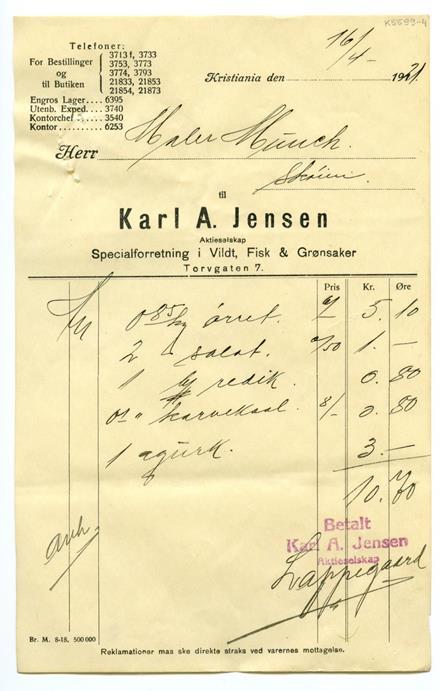 K5599-4
Telefoner:
For Bestillinger og til Butiken
3713 f, 3733
3753, 3773
3774, 3793
21833, 21853
21854, 21873
Engros Lager.... 6395
Utenb. Exped. .. 3740
Kontorchef .... 3540
Kontor ........ 6253
16/4-
Kristiania den 1921.
Herr Maler Munch.
Skøien.
til
Karl A. Jensen
Aktieselskap
Specialforretning i Vildt, Fisk & Grønsaker
Torvgaten 7.
Pris Kr. Øre
0 85 kg ørret. 6/- 5. 10
2 " salat. 0/50 1. -
1 bt redik. 0. 80
" karvekaal. 8/- 0. 80
1 agurk. 3. -
10. 70
Betalt
Karl A. Jensen
Aktieselskap
Lappegaard
Br. M. 8-18. 500 000
Reklamationer maa ske direkte straks ved varernes mottagelse.